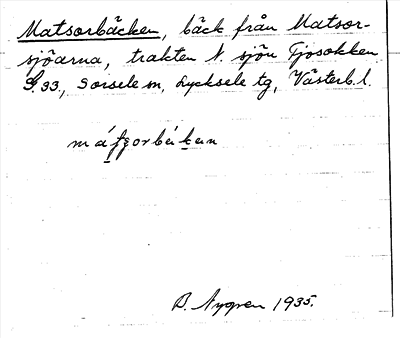 Matsorbäcken, bäck från Matsor-
sjöarna, trakten N. sjön Tjosokken
S. 33, Sorsele sn, Lycksele tg, Västerb. l.
B. Nygren 1935.